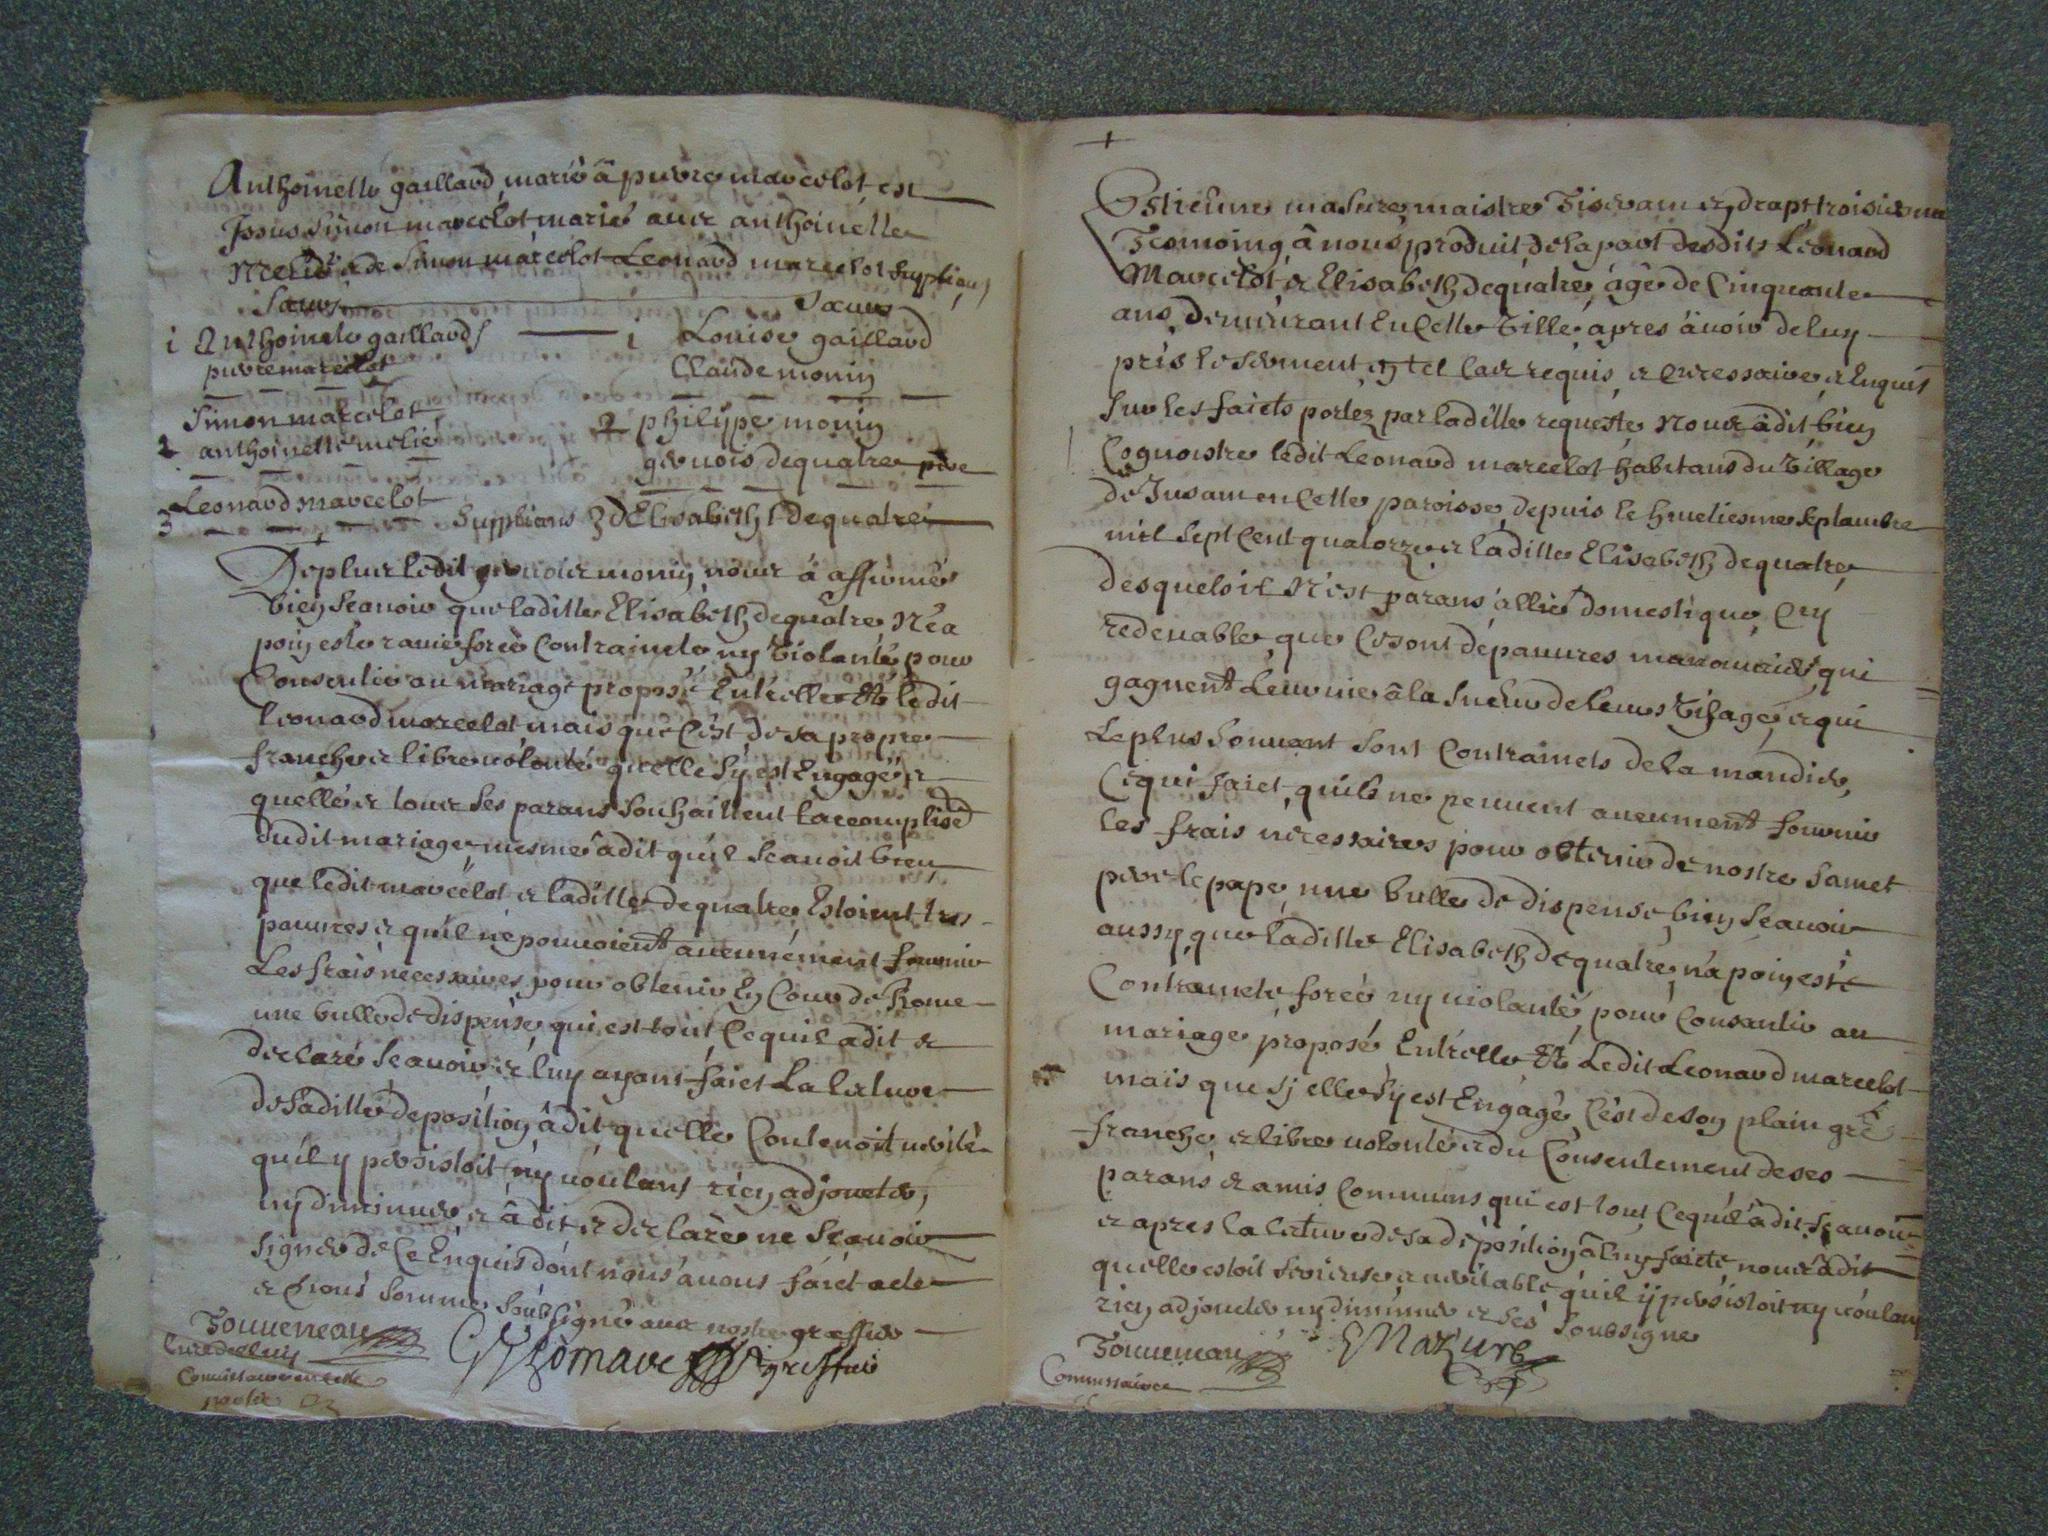 Anthoinette gaillard, marié â pierre marcelot est
Jssus Simon marcelot marié avec anthoinette
de Simon marcelot Leonard marcelot Suppliant
Sœur Sœur
1 Anthoinete gaillard 1 Louise gaillard
pierre marcelot Claude monin
Simon marcelot 2 philipe monin
2 anthoinette melié gervois dequatre pere
Leonard marcelot
3 Supplians 3 d'Elisabeth dequatre
De plus ledit monin nous â affirmé
bien Scavoir que laditte Elisabeth dequatre N'ea
poin este ravie forcé Contrainte ny Violanté pour
Consentir au mariage proposé Entr'elle & ledit
leonard marcelot mais que C'est de sa propre
franche et libre volonté qu'elle S'y est Engagé et
quelle et tous Ses parans Souhaittent l'accomplisd
dudit mariage mesme âdit qu'il Scavoit bien
que ledit marcelot et laditte dequatre Estoient tres
pauvres et qu'il ne pouvoient aucunément fournir
Les frais necessaires pour obtenir En Cour de Rome
une bulle de dispense qui est tout Cequil adit et
declaré Scavoir et luy ayant faict La lecture
de Saditte deposition âdit quelle Contenoit verité
qu'il y persistoit ny voulans rien adjouter,
ny diminuer et â dit et declaré ne Scavoir
Signer de Ce Enquis dont nous avons faict acte
et nous Somme Soubsigné avec nostre greffier
Touveneau G Thomave greffier
Curé de
Commissaire en cette
partie
+
Estienne masure, maistre Tisseran en drapt troisieme
Tesmoing â nous produit de la part desdits Leonard
Marcelot et Elisabeth dequatre âgé de Cinquante
ans, demeurant En Cette Ville, apres âvoir de luy
pris le serment en tel Cas requis et necessaire et Enquis
Sur les faicts portez par laditte requeste Nous âdit bien
Cognoistre ledit Leonard marcelot habitans du Village
de Jusam en Cette paroisse, depuis le huetiesme Septambre
mil Sept Cent quatorze et laditte Elisabeth dequatre
desquels il N'est parans allié domestique Ny
redevable, que Ce sont de pauvres manouvriers qui
gagnent Leur vie â la Sueur de leurs Visage, et qui
Le plus Souvant Sont Contraincts de la mandier,
Ce qui faict, quils ne peuvent aucument fournir
les frais necessaires pour obtenir de nostre Sainct
pere le pape, une bulle de dispense, bien Scavoir
aussy que laditte Elisabeth dequatre, n'a poin esté
Contraincte forcé ny violanté, pour Consantir au
mariage proposé Entr'elle & Ledit Leonard marcelot
mais que sj elle S'y est Engagé, C'est de son plain gré
franche et libre volonté et du Consentement de ses
parans et amis Communs qui est tout Cequil âdit Scavoir
et apres la lecture de sa deposition â luy faicte nous âdit
quelle estoit serieuse et veritable qu'il ij persistoit ny voulant
rien adjouter ny diminuer et s'es Soubsigne
Touveneau E Mazure
Commissaire